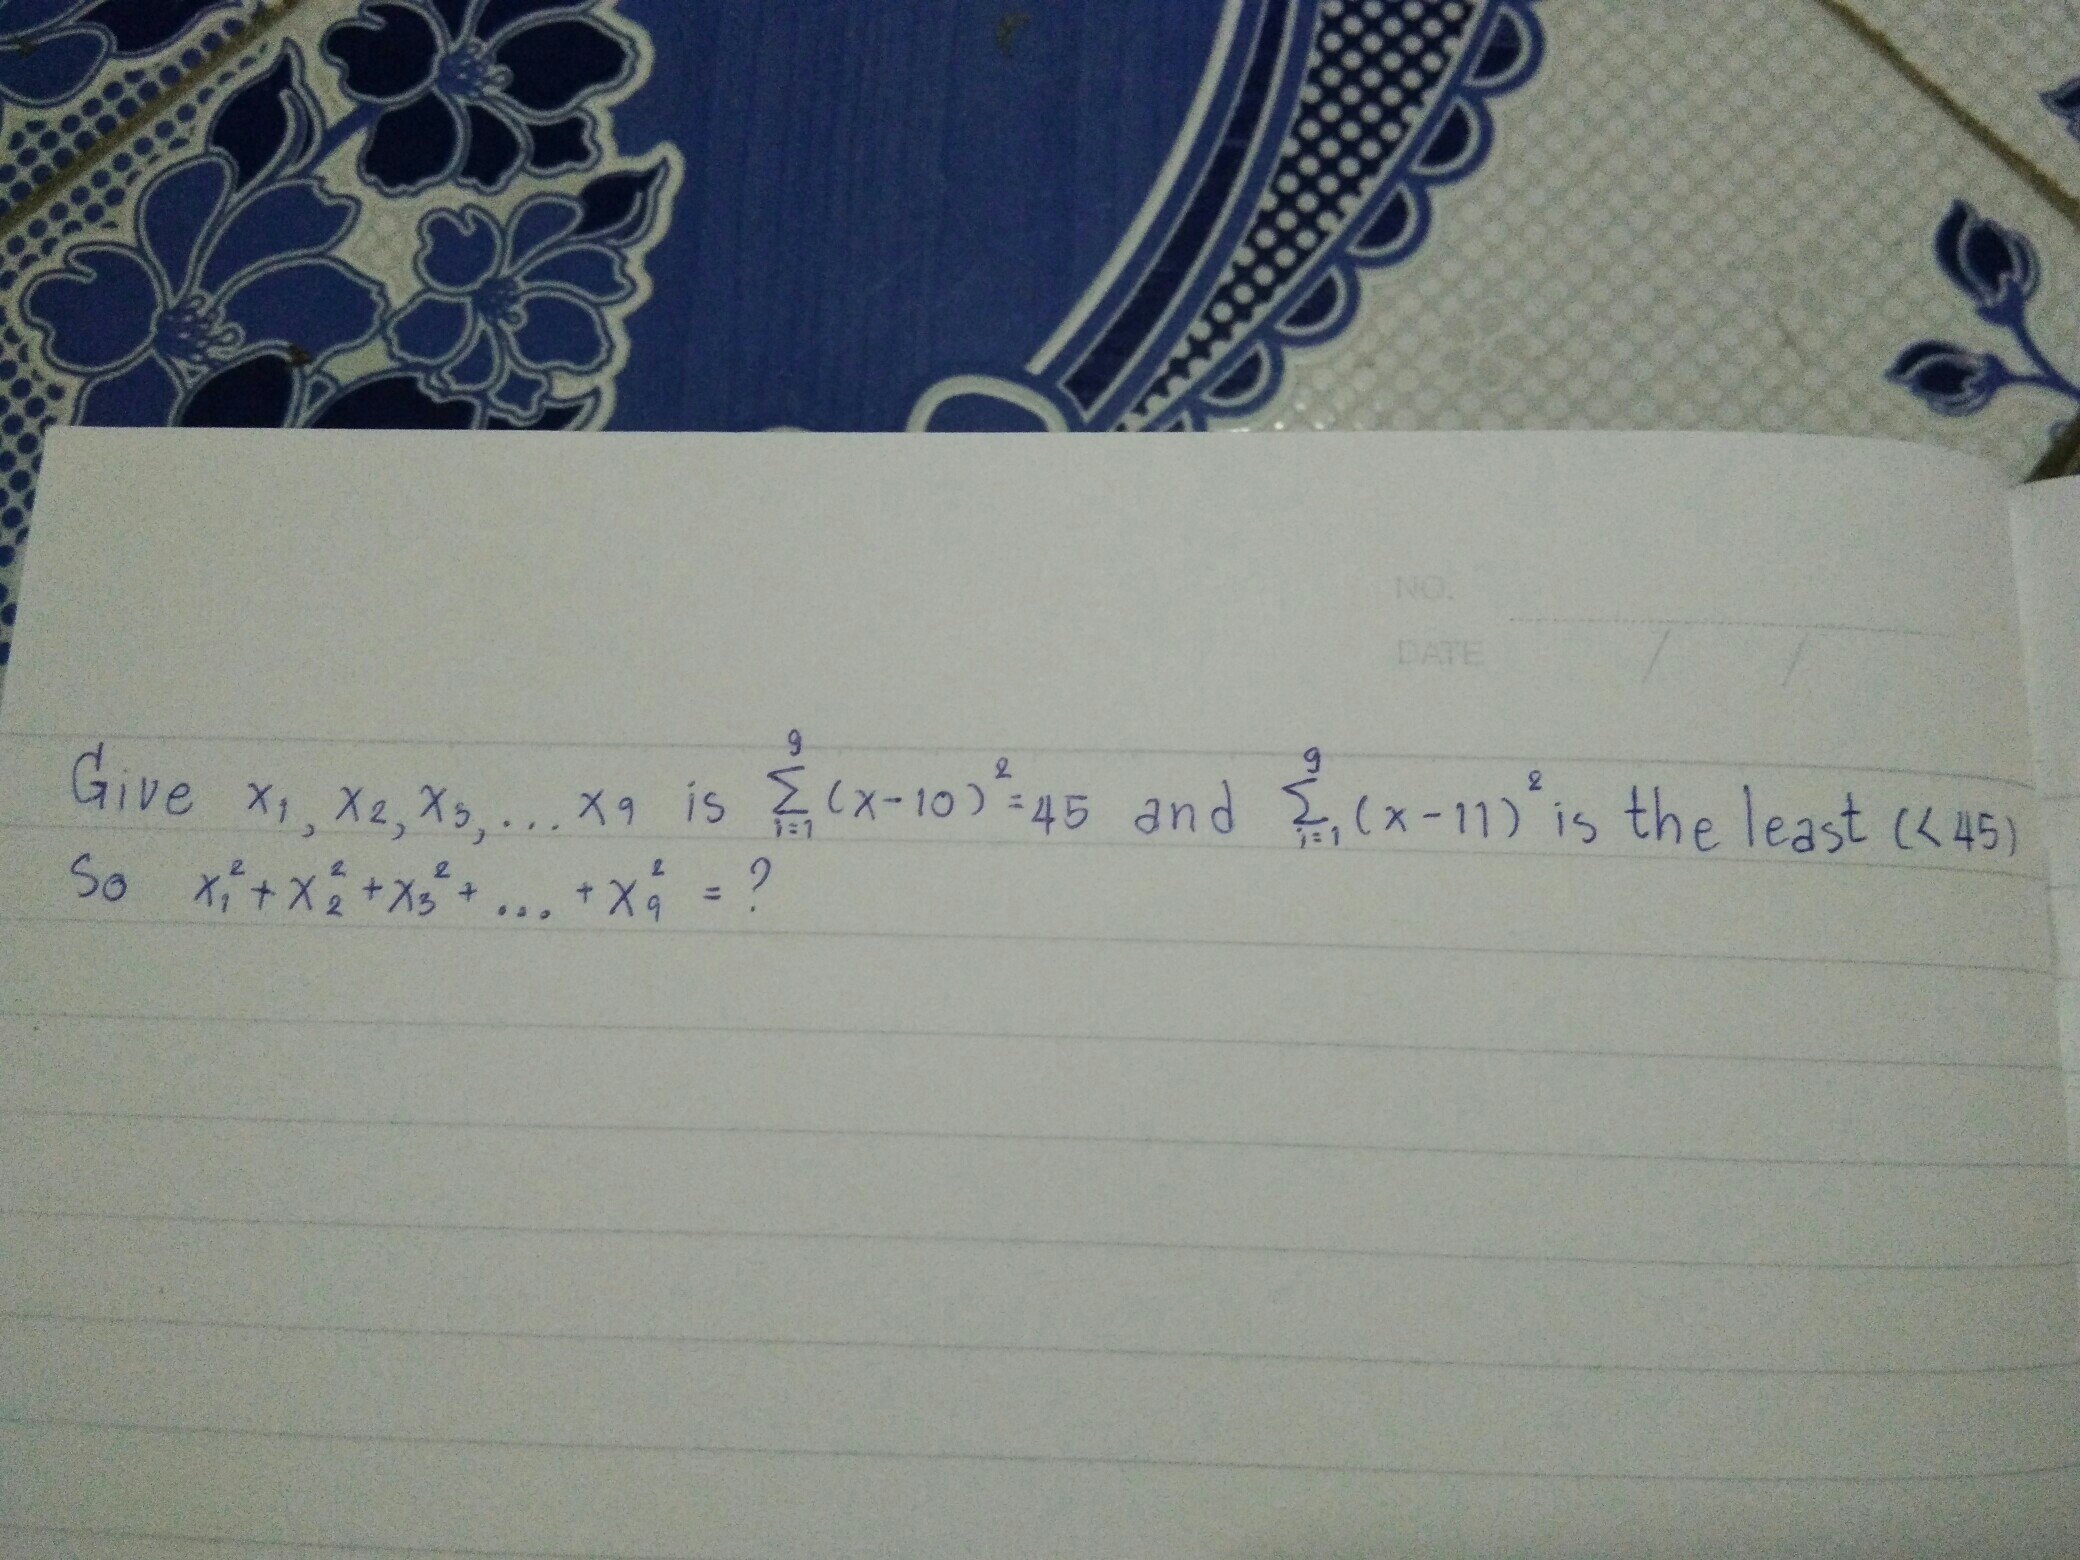 NO.
DATE / /
Give x₁, x₂, x₃, ... x₉ is $\sum_{i=1}^{9}(x-10)^2 = 45$ and $\sum_{i=1}^{9}(x-11)^2$ is the least (< 45)
So x₁² + x₂² + x₃² + ... + x₉² = ?